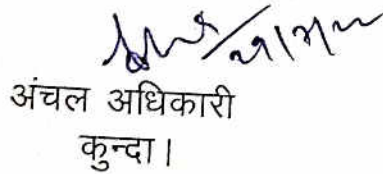 अंचल अधिकारी
कुन्दा।